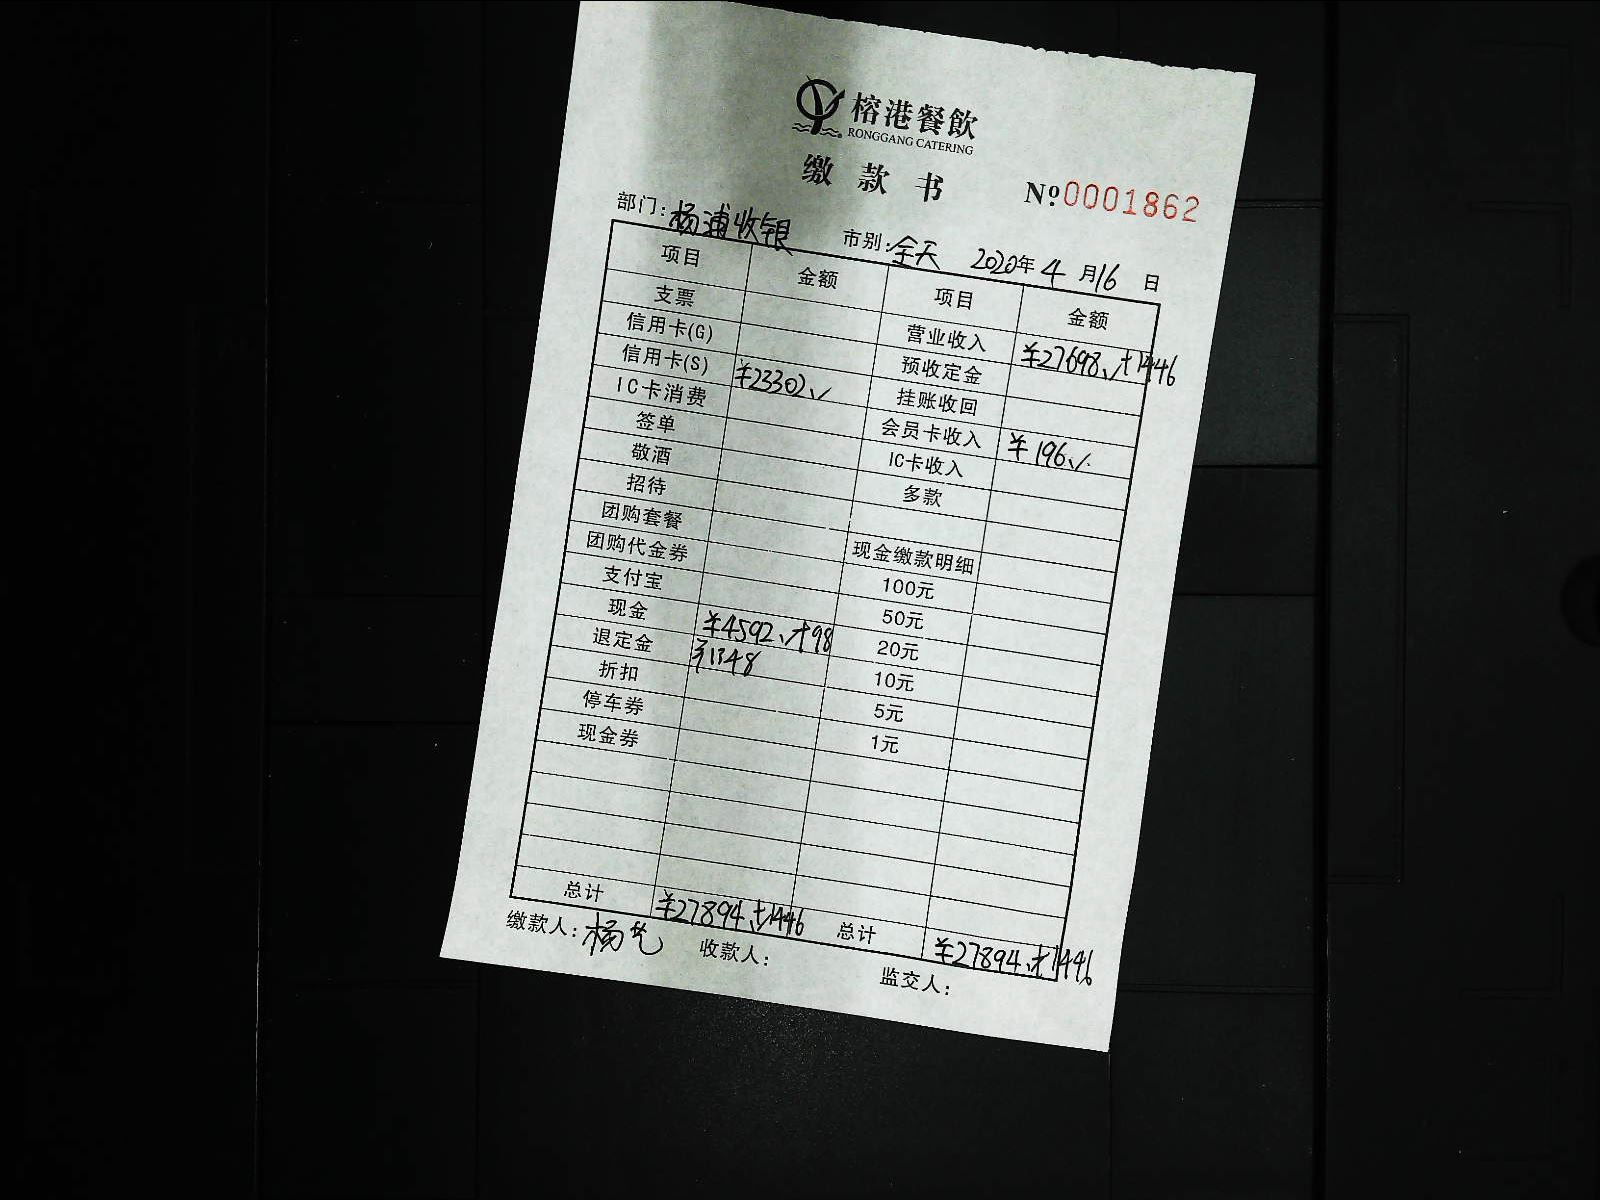 榕港餐飲
RONGGANG CATERING
缴款书
№0001862
部门:杨浦收银 市别:全天 2020年4月16日
项目 金额 项目 金额
支票 营业收入 ¥27698、才1446
信用卡(G) 预收定金
信用卡(S) ¥23302、 挂账收回
IC卡消费 会员卡收入 ¥196、
签单 IC卡收入
敬酒 多款
招待
团购套餐 现金缴款明细
团购代金券 100元
支付宝 50元
现金 ¥4592、才98 20元
退定金 1348 10元
折扣 5元
停车券 1元
现金券
总计 ¥27894、才1446 总计 ¥27894、才1446
缴款人:杨 收款人: 监交人: